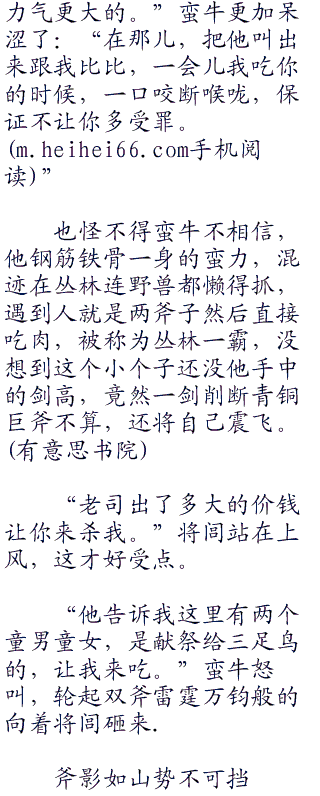 力气更大的。”蛮牛更加呆
涩了：“在那儿，把他叫出
来跟我比比，一会儿我吃你
的时候，一口咬断喉咙，保
证不让你多受罪。
(m.heihei66.com手机阅
读)”
也怪不得蛮牛不相信，
他钢筋铁骨一身的蛮力，混
迹在丛林连野兽都懒得抓，
遇到人就是两斧子然后直接
吃肉，被称为丛林一霸，没
想到这个小个子还没他手中
的剑高，竟然一剑削断青铜
巨斧不算，还将自己震飞。
(有意思书院)
“老司出了多大的价钱
让你来杀我。”将闾站在上
风，这才好受点。
“他告诉我这里有两个
童男童女，是献祭给三足鸟
的，让我来吃。”蛮牛怒
叫，轮起双斧雷霆万钧般的
向着将闾砸来.
斧影如山势不可挡